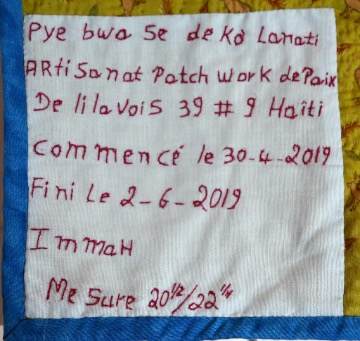 Pye bwa se de kò Lanati
ARtisanat Patch work de Paix
De lilavois 39 # 9 Haïti
commencé le 30-4-2019
Fini Le 2-6-2019
ImmaH
Me sure 20 1/2/22 1/4